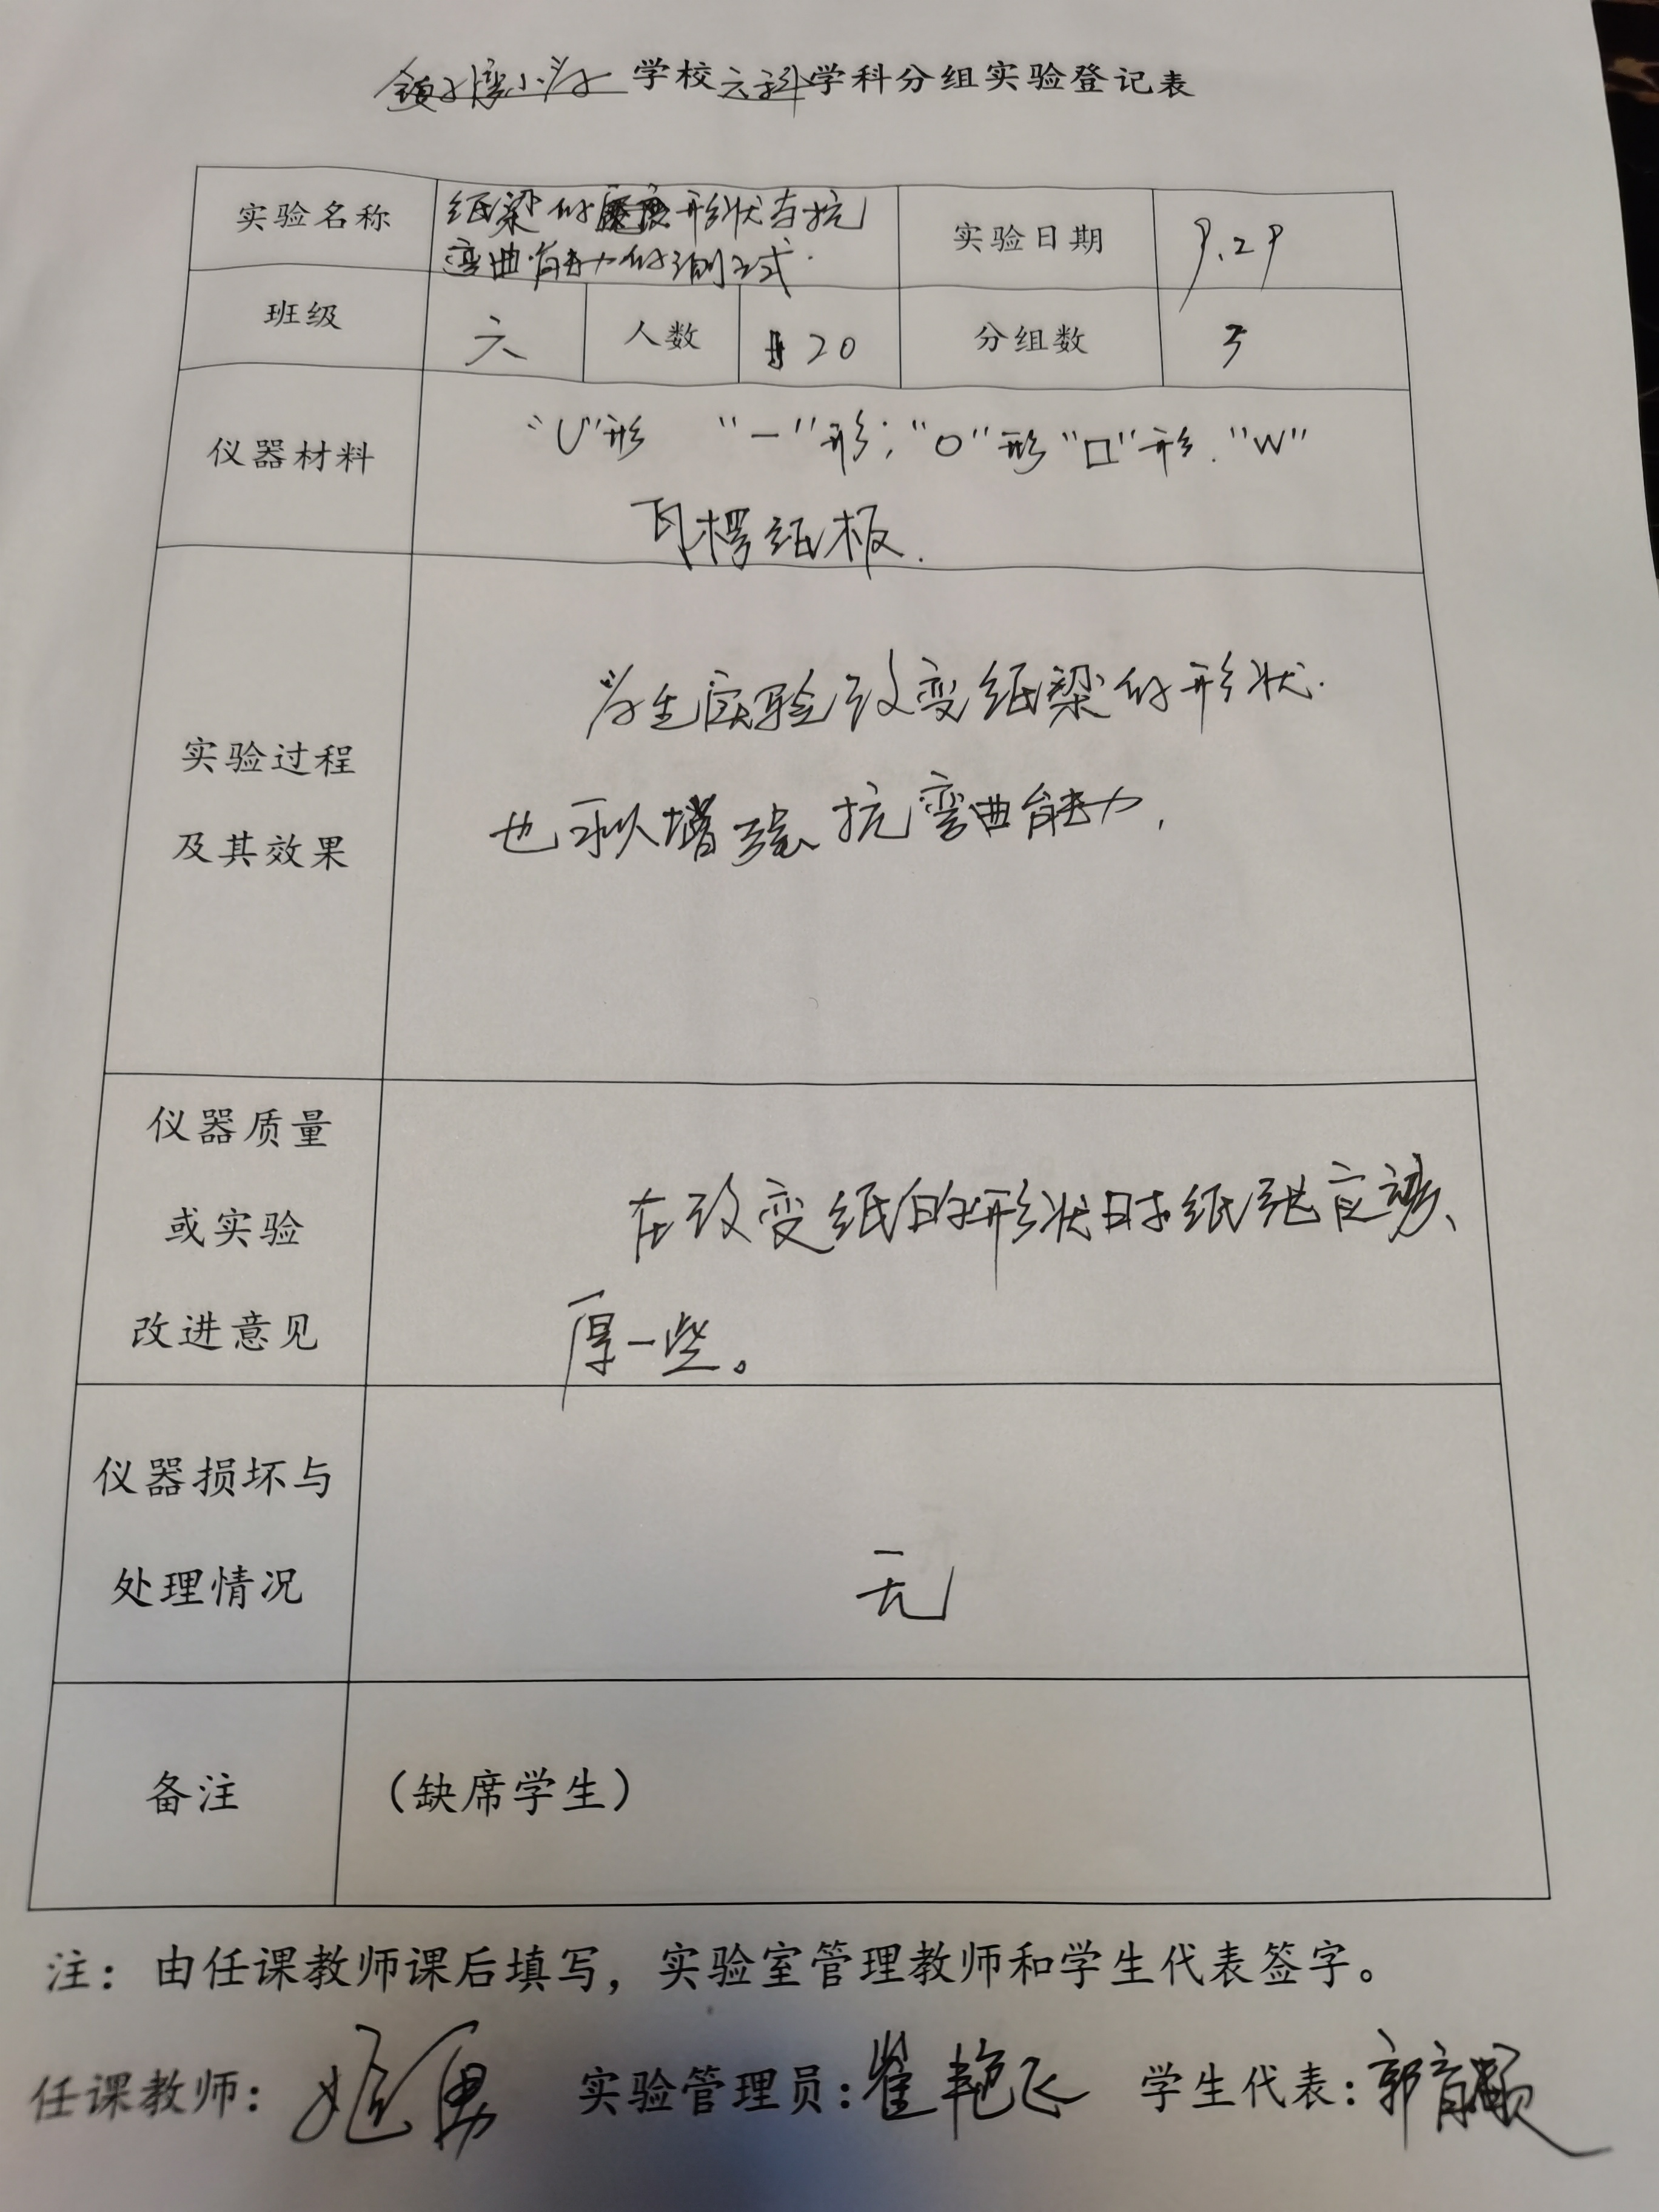 小学学校六科学科分组实验登记表
实验名称 纸梁的形状与抗弯曲能力的测试. 实验日期 9.29
班级 六 人数 20 分组数 5
仪器材料 “U”形 “一”形;“O”形“口”形.“W”
瓦楞纸板.
学生实验改变纸梁的形状.
实验过程
也可以增强抗弯曲能力,
及其效果
仪器质量
或实验 在改变纸的形状时纸张应该、
改进意见 厚一些。
仪器损坏与
处理情况 无
备注 (缺席学生)
注：由任课教师课后填写，实验室管理教师和学生代表签字。
任课教师： 实验管理员：崔艳飞 学生代表：郭育